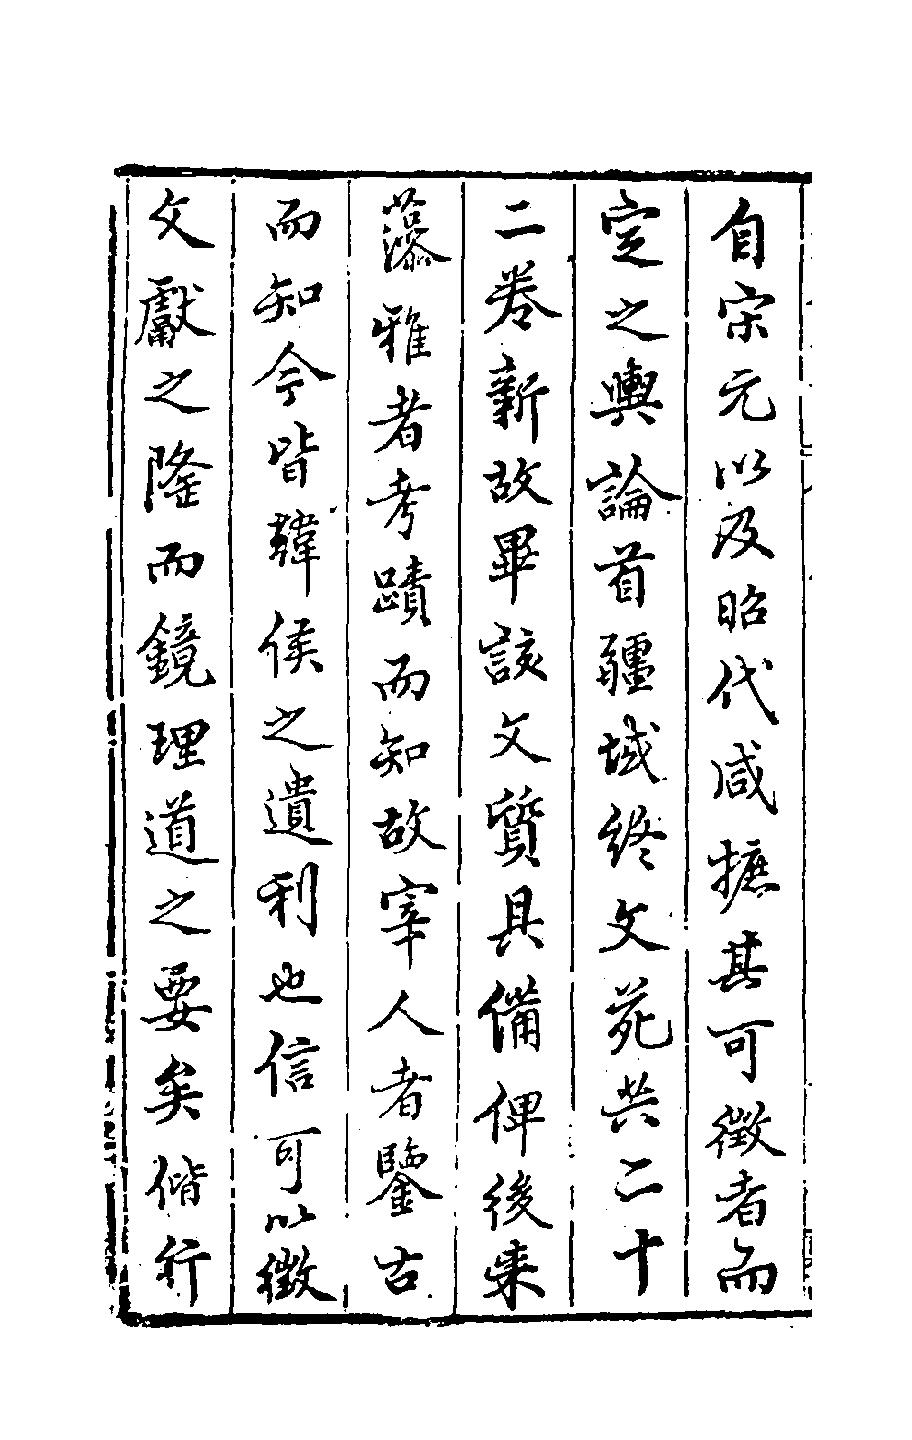 自宋元以及昭代咸摭其可徵者而
定之輿論首疆域終文苑共二十
二卷新故畢該文質具備俾後来
藻雅者考蹟而知故宰人者鑒古
而知今皆韓侯之遺利也信可以徵
文獻之隆而鏡理道之要矣偕行